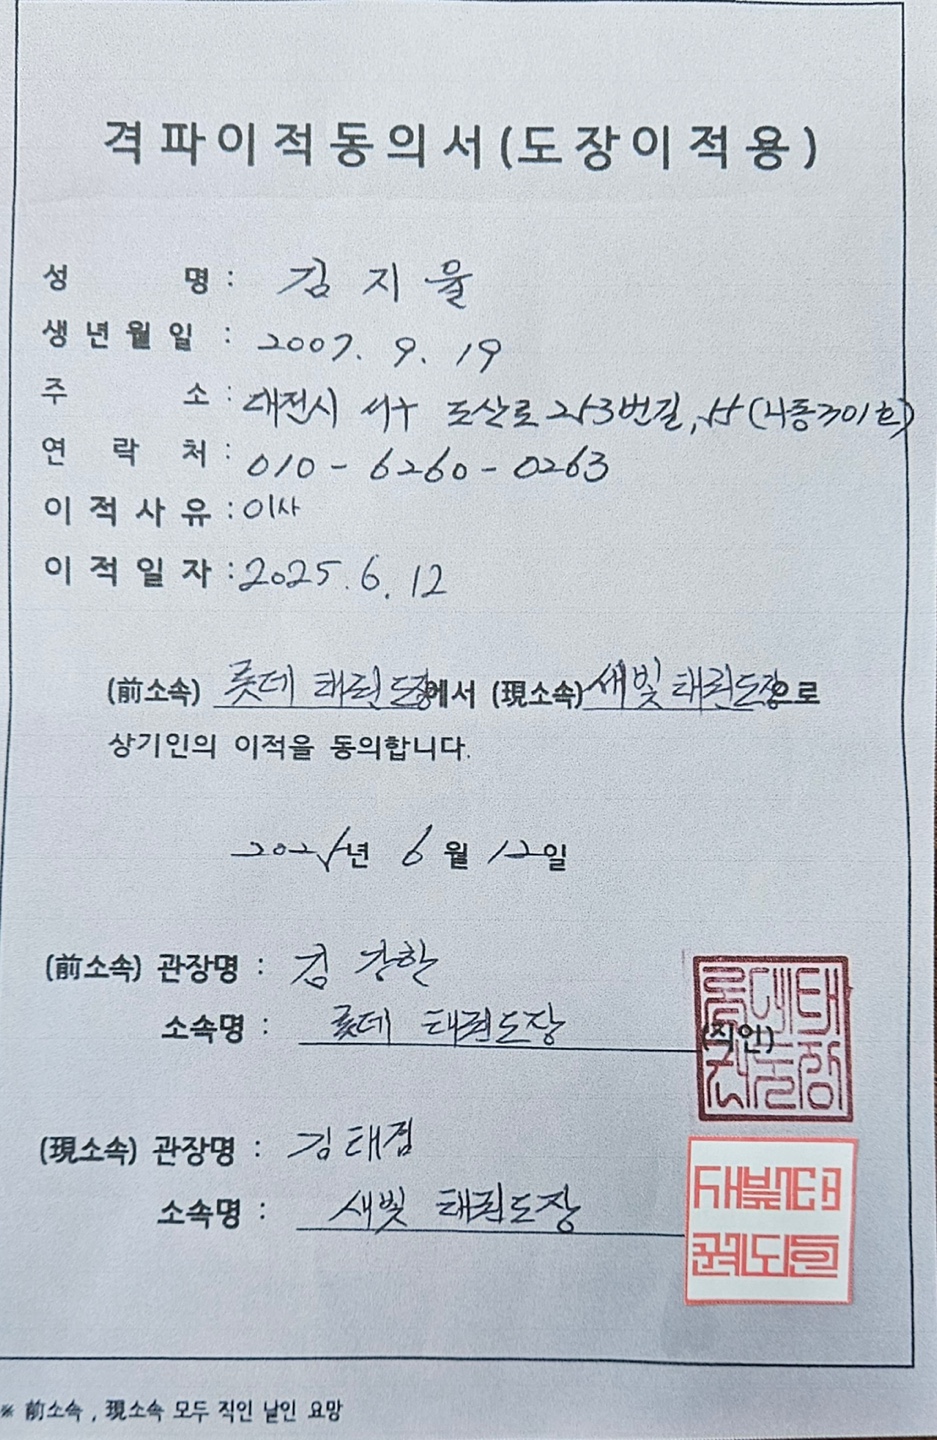 격파이적동의서(도장이적용)
성 명 : 김 지 율
생년월일 : 2007. 9. 19
주 소 : 대전시 서구 도산로 253번길, 15 (나동301호)
연 락 처 : 010 - 6260 - 0263
이적사유 : 이사
이적일자 : 2025. 6. 12
(前소속) 롯데 태권도장에서 (現소속) 새빛 태권도장으로
상기인의 이적을 동의합니다.
2025년 6월 12일
(前소속) 관장명 : 김 강한
소속명 : 롯데 태권도장 (직인)
(現소속) 관장명 : 김태
소속명 : 새빛 태권도장
※ 前소속 , 現소속 모두 직인 날인 요망